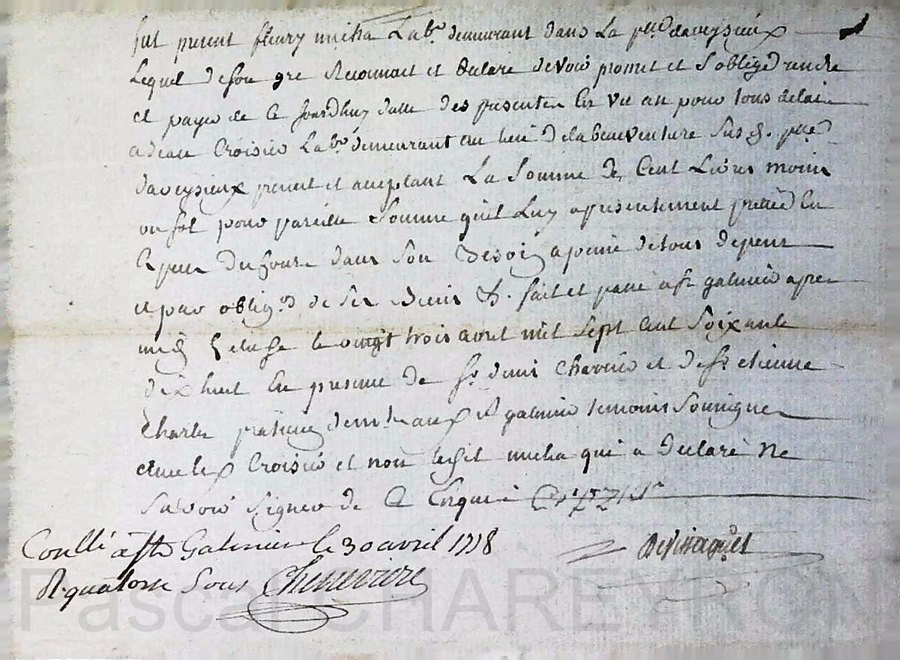 fut present fleury micha Lab.r demeurant dans La p.sse daveysieux
Lequel de son gre Reconnait et declare devoir promet et s'oblige rendre
et payer de ce jourdhuy datte des presentes En un an pour tous delais
a Jean Croisier Lab.r demeurant au lieu de labeneventure sus d. p.sse
daveysieux present et acceptant La Somme de Cent Livres moins
un sol pour pareille Somme qu'il Luy a presentement prêté En
Espece du Cours dans Son devoir a peine de tous depens
et par oblig.n de ses Biens &. fait et passé a st galmier apres
midy Estude le vingt trois avril mil sept cent Soixante
dix huit En presence de s.r denis Chavrier et de s.r etienne
Charle praticiens demt. taux st galmier temoins Soussignes
avec Led. Croisier et non ledit micha qui a declaré ne
Savoir Signer de ce Enquis
Conllé à st Galmier le 30 avril 1778
R. quatorze Sous
Pascal CHAREYRON